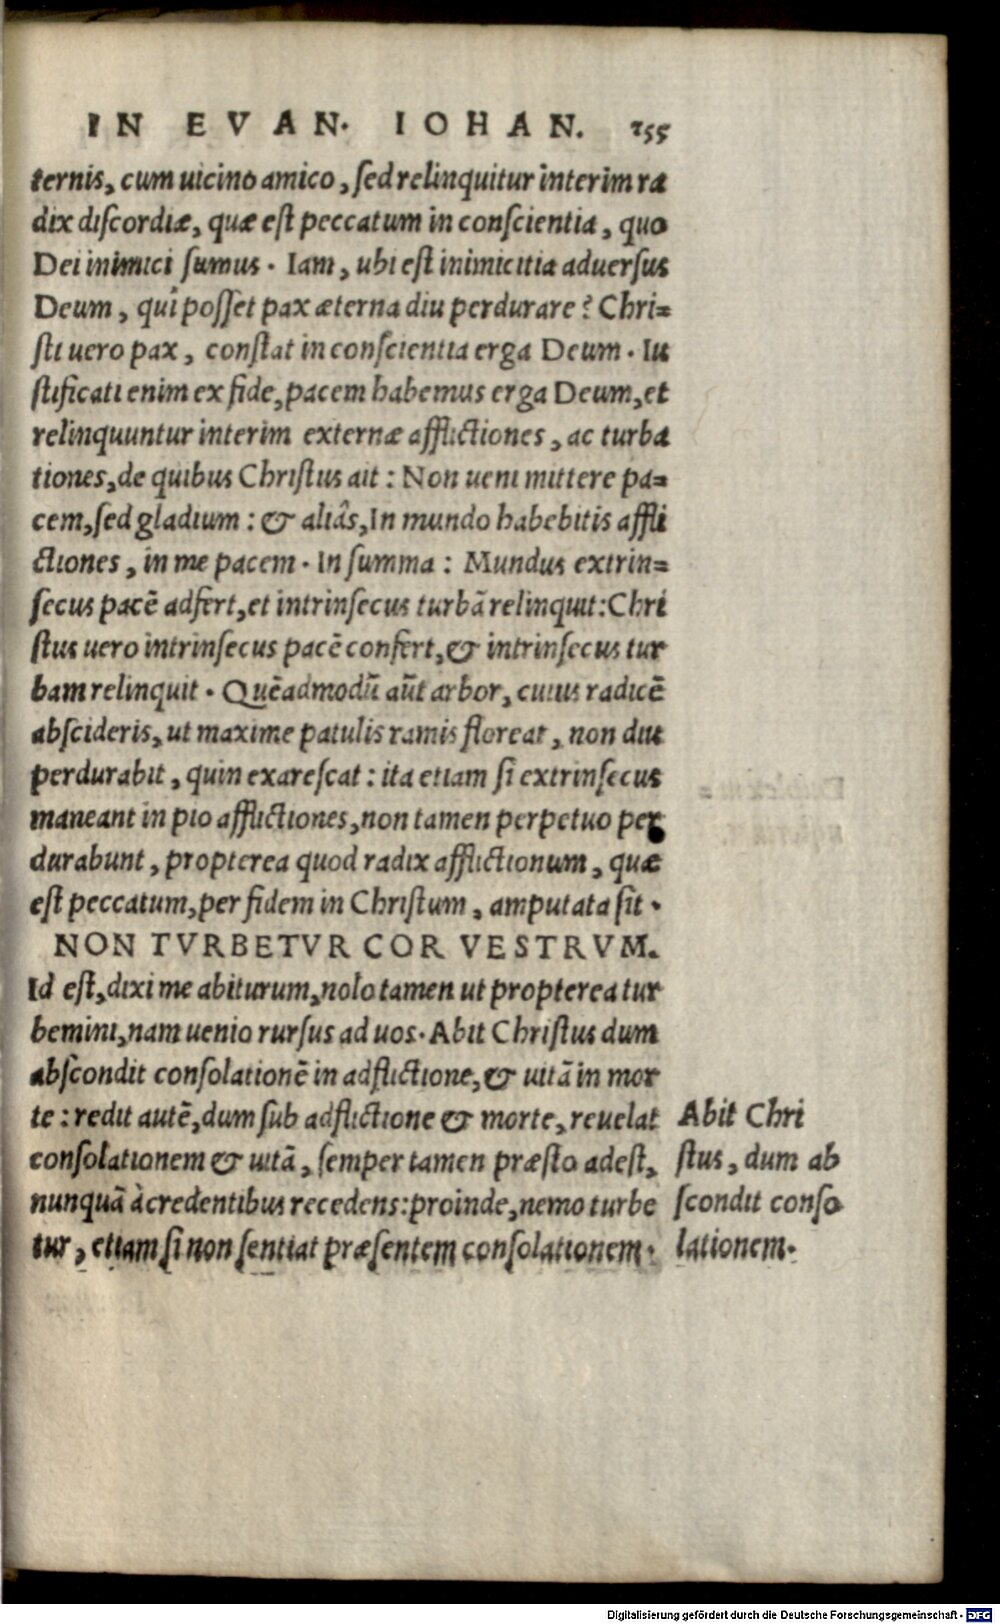 IN EVAN. IOHAN. 255
ternis, cum uicino amico, sed relinquitur interim ra
dix discordiæ, quæ est peccatum in conscientia, quo
Dei inimici sumus. Iam, ubi est inimicitia aduersus
Deum, quî posset pax æterna diu perdurare? Chri=
sti uero pax, constat in conscientia erga Deum. Iu
stificati enim ex fide, pacem habemus erga Deum, et
relinquuntur interim externæ afflictiones, ac turba
tiones, de quibus Christus ait: Non ueni mittere pa=
cem, sed gladium: & aliâs, In mundo habebitis affli
ctiones, in me pacem. In summa: Mundus extrin=
secus pacē adfert, et intrinsecus turbā relinquit: Chri
stus uero intrinsecus pacē confert, & intrinsecus tur
bam relinquit. Quēadmodū aūt arbor, cuius radicē
abscideris, ut maxime patulis ramis floreat, non diu
perdurabit, quin exarescat: ita etiam si extrinsecus
maneant in pio afflictiones, non tamen perpetuo per
durabunt, propterea quod radix afflictionum, quæ
est peccatum, per fidem in Christum, amputata sit.
NON TVRBETVR COR VESTRVM.
Id est, dixi me abiturum, nolo tamen ut propterea tur
bemini, nam uenio rursus ad uos. Abit Christus dum
abscondit consolationē in adflictione, & uitā in mor
te: redit autē, dum sub adflictione & morte, reuelat
consolationem & uitā, semper tamen præsto adest,
nunquā à credentibus recedens: proinde, nemo turbe
tur, etiam si non sentiat præsentem consolationem.
Abit Chri
stus, dum ab
scondit conso
lationem.
Digitalisierung gefördert durch die Deutsche Forschungsgemeinschaft - DFG